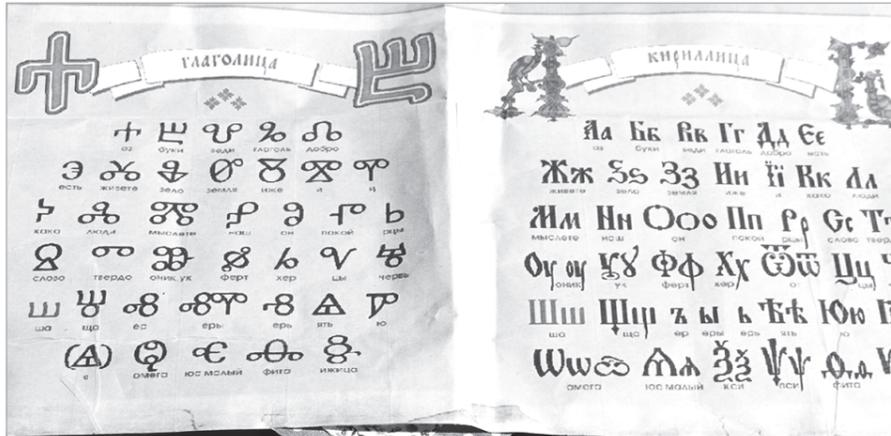 глаголица
Ⰰ Ⰱ Ⰲ Ⰳ Ⰴ
аз буки веди глаголь добро
Ⰵ Ⰶ Ⰷ Ⰸ Ⰻ Ⰹ Ⰺ
есть живете зело земля иже и й
Ⰽ Ⰾ Ⰿ Ⱀ Ⱁ Ⱂ Ⱃ
како люди мыслете наш он покой рцы
Ⱄ Ⱅ Ⱆ Ⱇ Ⱈ Ⱌ Ⱍ
слово твердо оник,ук ферт хер цы червь
Ⱎ Ⱋ Ⱏ ⰟⰊ Ⱐ Ⱑ Ⱓ
ша ща ер еры ерь ять ю
(Ⱑ) Ⱉ Ⱔ Ⱚ Ⱛ
е омега юс малый фита ижица
А Б
кириллица
Аа Бб Вв Гг Дд Єє
аз буки веди глаголь добро есть
Жж Ѕѕ Зз Ии Її Кк Лл
живете зело земля иже и како люди
Мм Нн Ѻо Пп Рр Сс Тт
мыслете наш он покой рцы слово
Оу оу Ꙋꙋ Фф Хх Ѿѿ Цц
оник ук ферт хер от цы
Шш Щщ ъ ы ь Ѣѣ Юю
ша ща ер еры ерь ять ю
Ѡѡ Ѧѧ Ѯѯ Ѱѱ Ѳѳ
омега юс малый кси пси фита